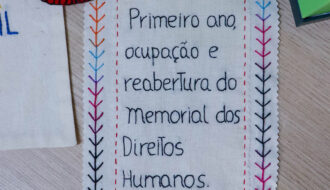 IL
Primeiro ano,
ocupação e
reabertura do
Memorial dos
Direitos
Humanos.